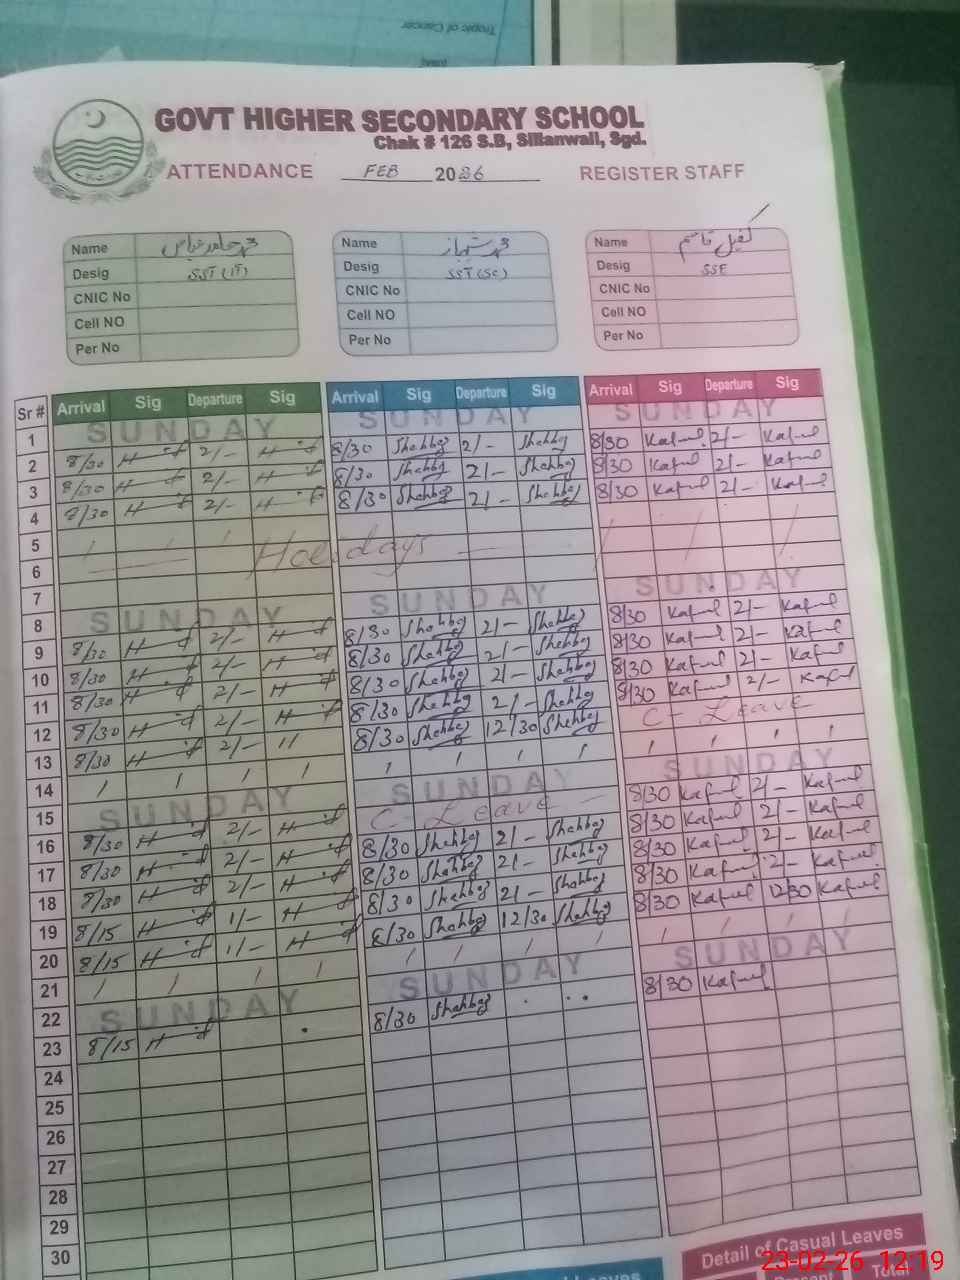 Tropic of Cancer
GOVT HIGHER SECONDARY SCHOOL
Chak # 126 S.B, Sillanwali, Sgd.
ATTENDANCE FEB 2026 REGISTER STAFF
Name محمد حامد عباس Name محمد شہباز Name کفیل قاسم
Desig SST (IT) Desig SST (SC) Desig SSE
CNIC No CNIC No CNIC No
Cell NO Cell NO Cell NO
Per No Per No Per No
Sr # Arrival Sig Departure Sig Arrival Sig Departure Sig Arrival Sig Departure Sig
1 SUNDAY SUNDAY SUNDAY
2 8/30 2/- 8/30 Shahbaz 2/- Shahbaz 8/30 Kafeel 2/- Kafeel
3 8/30 2/- 8/30 Shahbaz 2/- Shahbaz 8/30 Kafeel 2/- Kafeel
4 8/30 2/- 8/30 Shahbaz 2/- Shahbaz 8/30 Kafeel 2/- Kafeel
5 Holidays
6
7
8 SUNDAY SUNDAY SUNDAY
9 8/30 2/- 8/30 Shahbaz 2/- Shahbaz 8/30 Kafeel 2/- Kafeel
10 8/30 2/- 8/30 Shahbaz 2/- Shahbaz 8/30 Kafeel 2/- Kafeel
11 8/30 2/- 8/30 Shahbaz 2/- Shahbaz 8/30 Kafeel 2/- Kafeel
12 8/30 2/- 8/30 Shahbaz 2/- Shahbaz 8/30 Kafeel 2/- Kafeel
13 8/30 2/- 11 8/30 Shahbaz 12/30 Shahbaz C-Leave
14
15 SUNDAY SUNDAY SUNDAY
16 8/30 2/- C-Leave 8/30 Kafeel 2/- Kafeel
17 8/30 2/- 8/30 Shahbaz 2/- Shahbaz 8/30 Kafeel 2/- Kafeel
18 8/30 2/- 8/30 Shahbaz 2/- Shahbaz 8/30 Kafeel 2/- Kafeel
19 8/15 1/- 8/30 Shahbaz 2/- Shahbaz 8/30 Kafeel 2/- Kafeel
20 8/15 1/- 8/30 Shahbaz 12/30 Shahbaz 8/30 Kafeel 12/30 Kafeel
21
22 SUNDAY SUNDAY SUNDAY
23 8/15 8/30 Shahbaz 8/30 Kafeel
24
25
26
27
28
29
30
Detail of Casual Leaves
Total
23-02-26 12:19